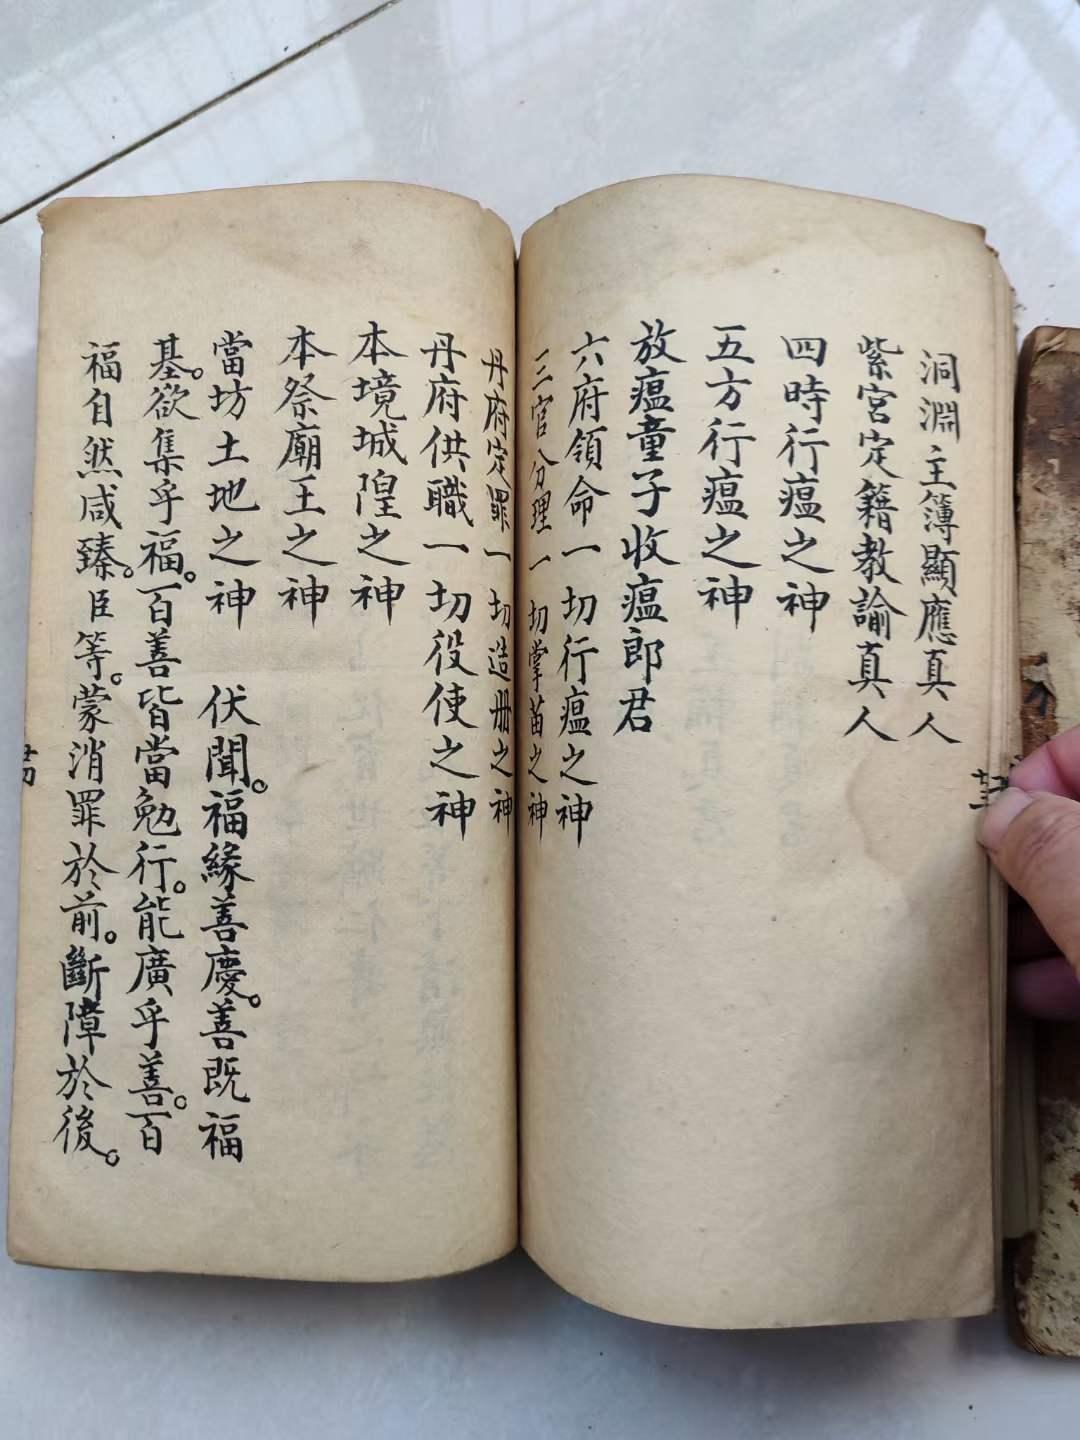 洞淵主簿顯應真人
紫宮定籍教諭真人
四時行瘟之神
五方行瘟之神
放瘟童子收瘟郎君
六府領命一切行瘟之神
三官分理一切掌苗之神
丹府定罪一切造冊之神
丹府供職一切役使之神
本境城隍之神
本祭廟王之神
當坊土地之神　伏聞。福緣善慶。善既福
基。欲集乎福。百善皆當勉行。能廣乎善。百
福自然咸臻。臣等。蒙消罪於前。斷障於後。